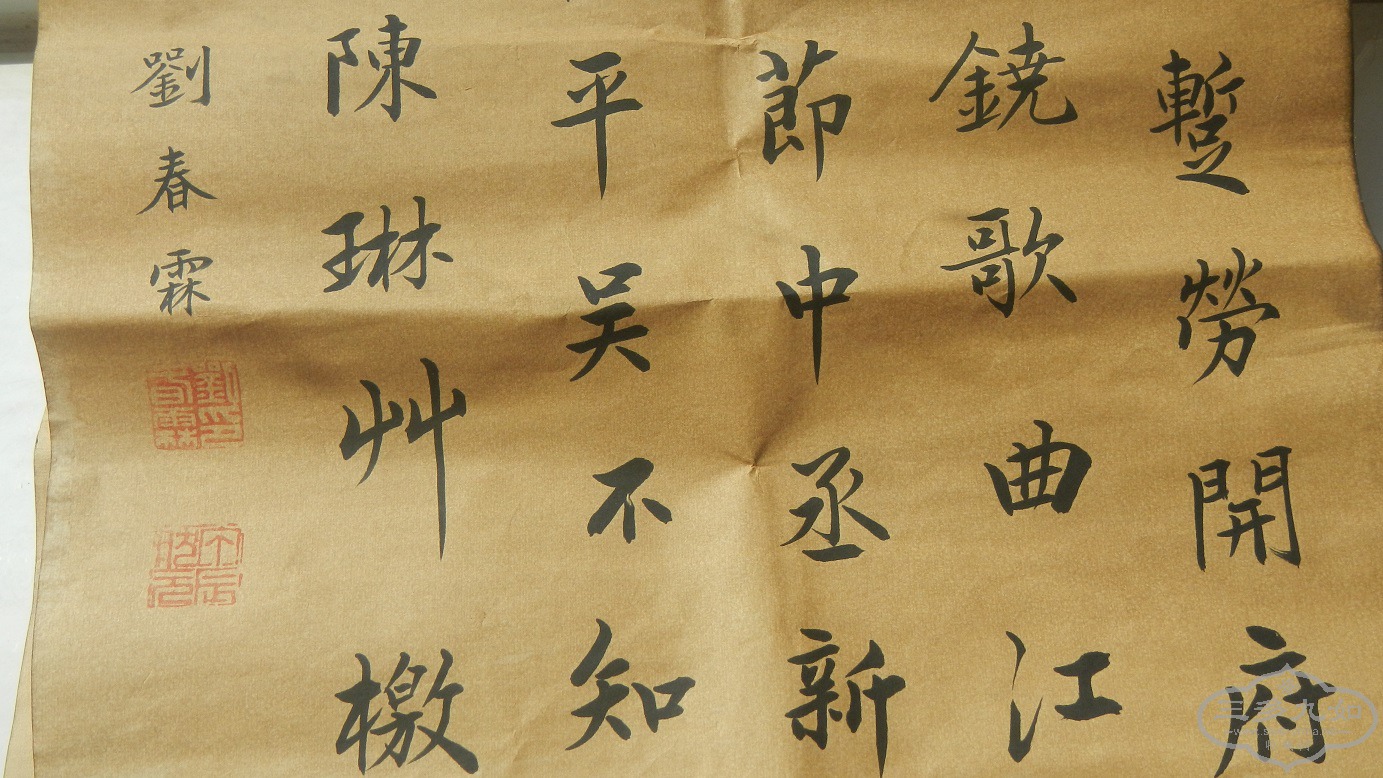 蹔勞開府
鐃歌曲江
莭中丞新
平吴不知
陳琳艸檄
劉春霖